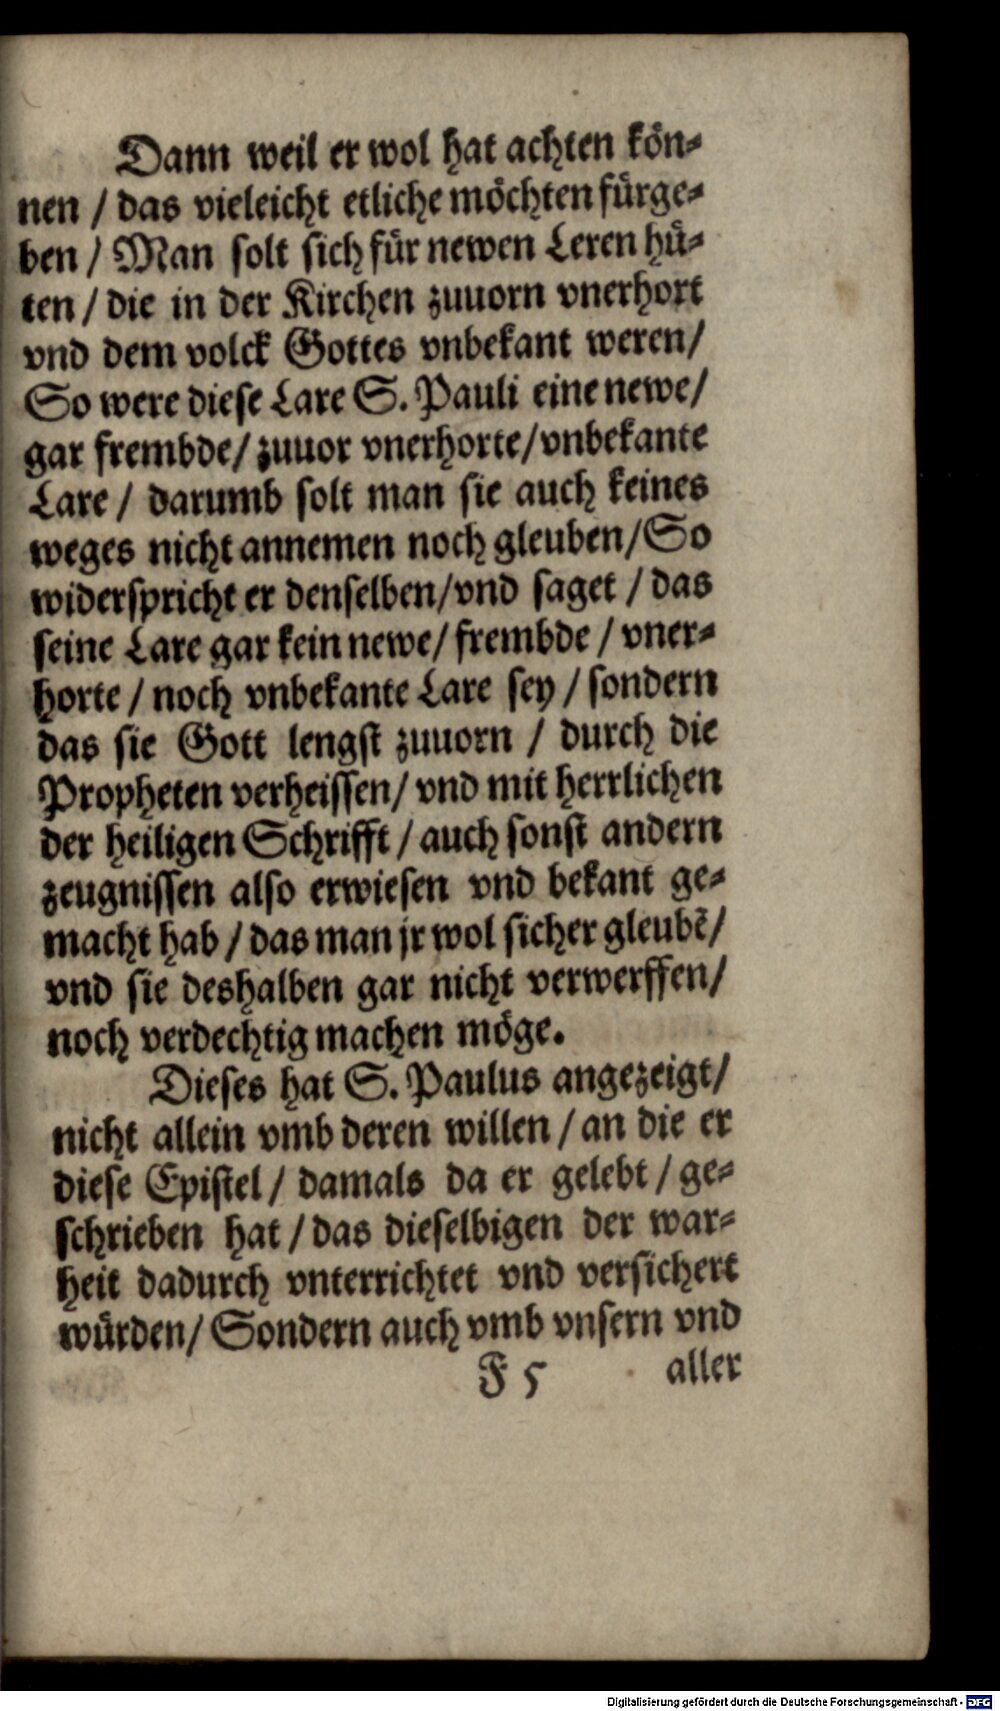 Dann weil er wol hat achten kön⸗
nen / das vieleicht etliche möchten fürge⸗
ben / Man solt sich für newen Leren hü⸗
ten / die in der Kirchen zuuorn vnerhort
vnd dem volck Gottes vnbekant weren /
So were diese Lare S. Pauli eine newe /
gar frembde / zuuor vnerhorte / vnbekante
Lare / darumb solt man sie auch keines
weges nicht annemen noch gleuben / So
widerspricht er denselben / vnd saget / das
seine Lare gar kein newe / frembde / vner⸗
horte / noch vnbekante Lare sey / sondern
das sie Gott lengst zuuorn / durch die
Propheten verheissen / vnd mit herrlichen
der heiligen Schrifft / auch sonst andern
zeugnissen also erwiesen vnd bekant ge⸗
macht hab / das man jr wol sicher gleubē /
vnd sie deshalben gar nicht verwerffen /
noch verdechtig machen möge.
Dieses hat S. Paulus angezeigt /
nicht allein vmb deren willen / an die er
diese Epistel / damals da er gelebt / ge⸗
schrieben hat / das dieselbigen der war⸗
heit dadurch vnterrichtet vnd versichert
würden / Sondern auch vmb vnsern vnd
F 5 aller
Digitalisierung gefördert durch die Deutsche Forschungsgemeinschaft - DFG